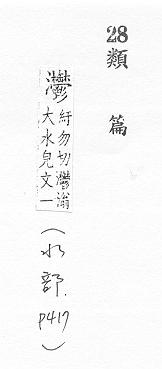 28類篇
灪
紆勿切灪滃
大水皃文一
(水部.
P417)